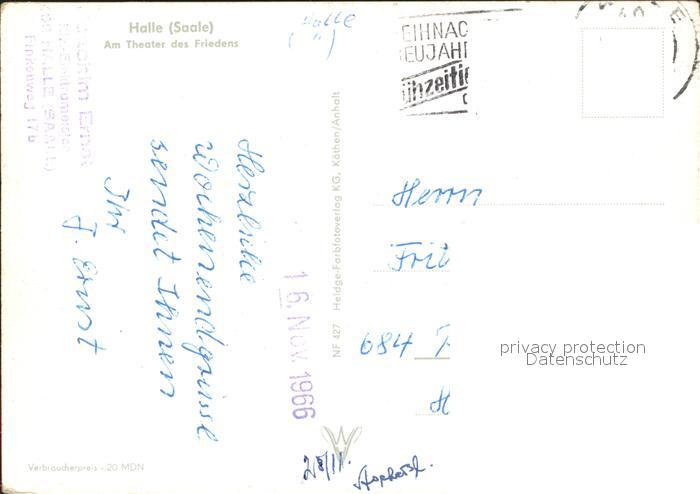 Halle (Saale)
Am Theater des Friedens
Halle
EIHNAC
EUJAH
ühzeitig
Joachim Ernst
HALLE (SAALE)
Finkenweg 17b
Herzliche
Wochenendgrüsse
sendet Ihnen
Ihr
J. Ernst
16. Nov. 1966
NF 427 Heldge-Farbfotoverlag KG, Köthen/Anhalt
Herrn
684
privacy protection
Datenschutz
Verbraucherpreis -.20 MDN